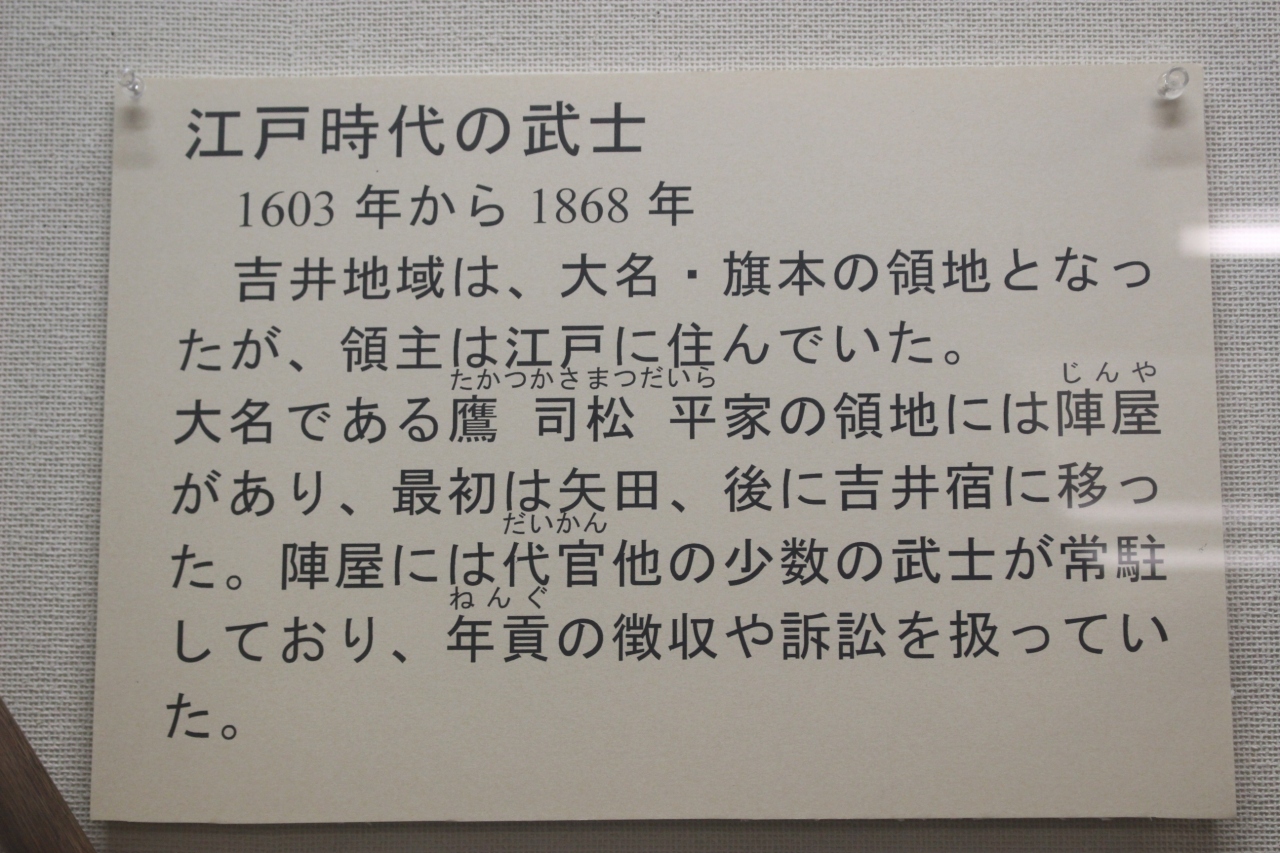 江戸時代の武士
1603 年から 1868 年
吉井地域は、大名・旗本の領地となっ
たが、領主は江戸に住んでいた。
たかつかさまつだいら じんや
大名である鷹 司松 平家の領地には陣屋
があり、最初は矢田、後に吉井宿に移っ
だいかん
た。陣屋には代官他の少数の武士が常駐
ねんぐ
しており、年貢の徴収や訴訟を扱ってい
た。